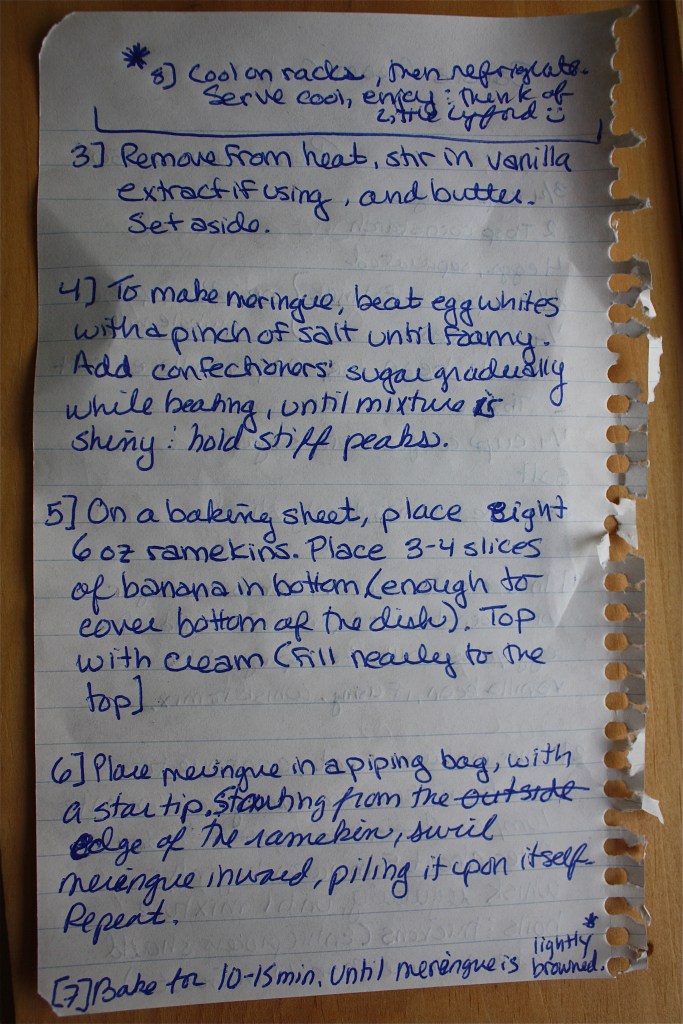 * 8] Cool on racks, then refrigerate.
Serve cool, enjoy : think of
little Lyford ☺
3] Remove from heat, stir in vanilla
extract if using, and butter.
Set aside.
4] To make meringue, beat egg whites
with a pinch of salt until foamy.
Add confectioners' sugar gradually
while beating, until mixture is
shiny : hold stiff peaks.
5] On a baking sheet, place eight
6 oz ramekins. Place 3-4 slices
of banana in bottom (enough to
cover bottom of the dish). Top
with cream (fill nearly to the
top]
6] Place meringue in a piping bag, with
a star tip. Starting from the outside
edge of the ramekin, swirl
meringue inward, piling it upon itself.
Repeat.
[7] Bake for 10-15 min. until meringue is lightly browned.*